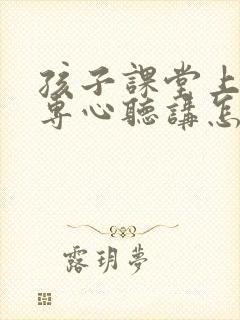 孩子課堂上
專心聽講怎
露玥夢